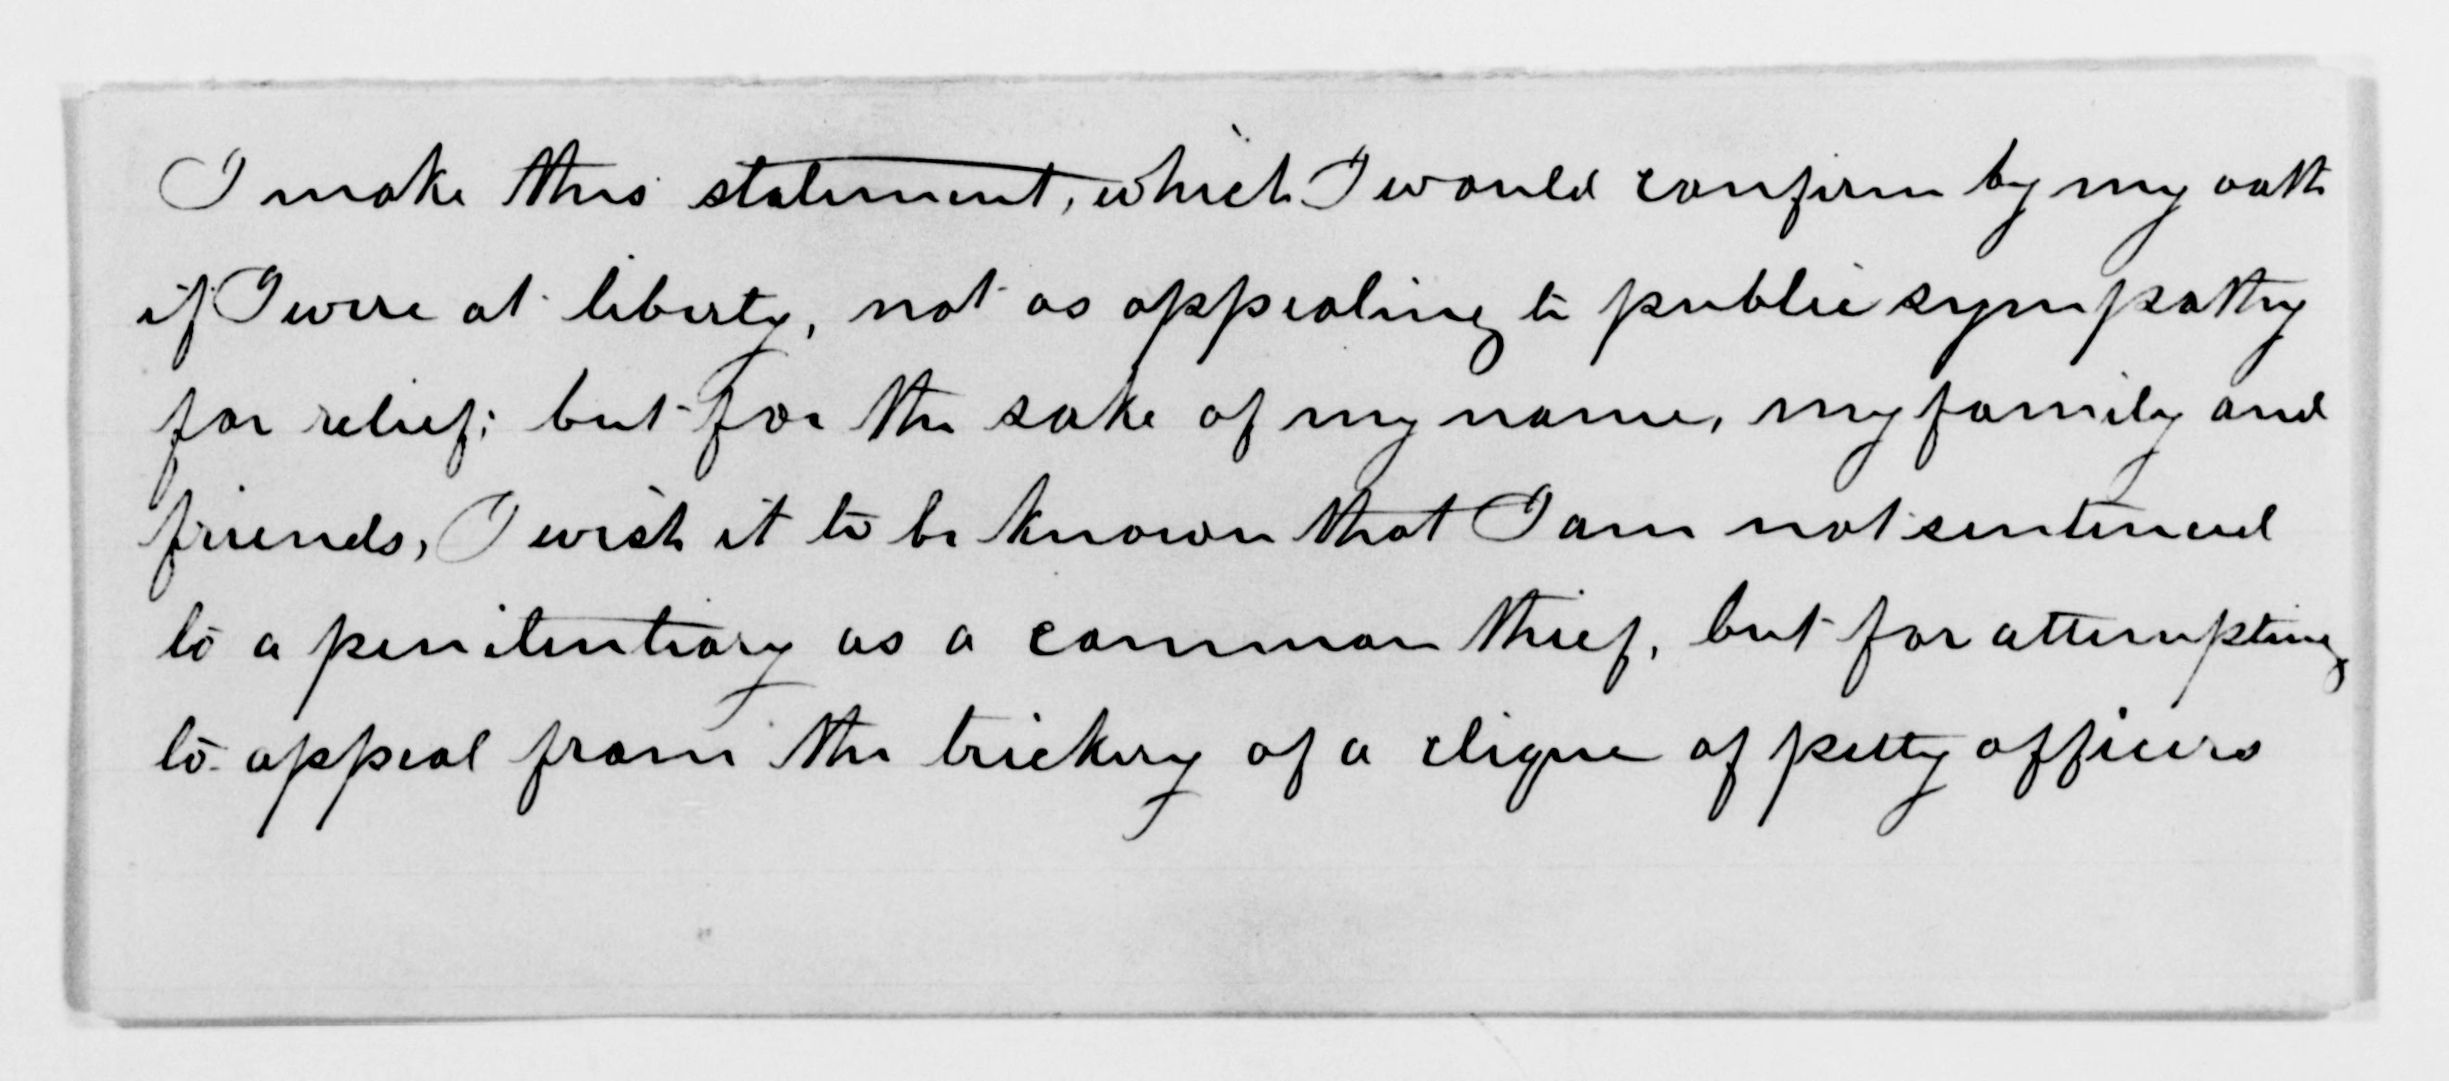 I make this statement, which I would confirm by my oath
if I were at liberty, not as appealing to public sympathy
for relief; but for the sake of my name, my family and
friends, I wish it to be known that I am not sentenced
to a penitentiary as a common thief, but for attempting
to appeal from the trickery of a clique of petty officers